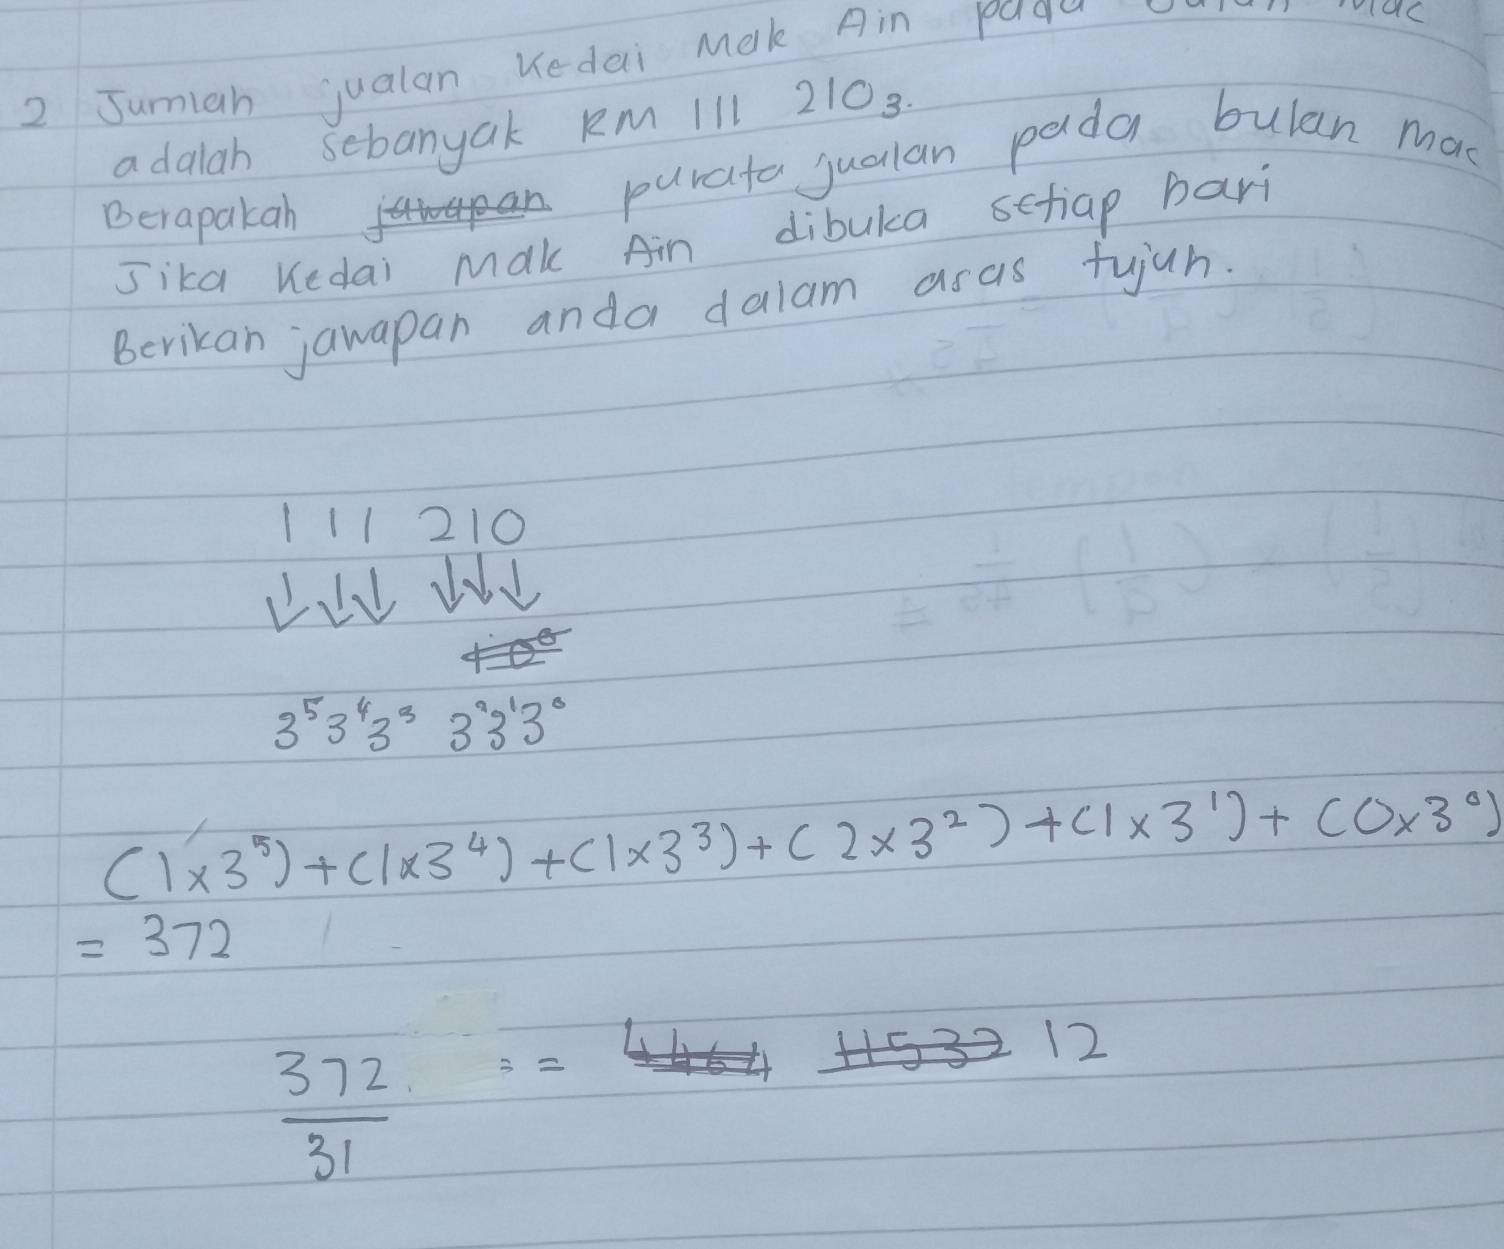 2 Jumlah jualan Kedai Mak Ain pada Mac
adalah sebanyak RM 111 210₃.
Berapakah jawapan purata jualan pada bulan mac
Jika Kedai Mak Ain dibuka setiap hari
Berikan jawapan anda dalam asas tujuh.
1 1 1 2 1 0
↓↓↓ ↓↓↓
3⁵3⁴3³ 3²3¹3⁰
(1×3⁵)+(1×3⁴)+(1×3³)+(2×3²)+(1×3¹)+(0×3⁰)
= 372
372 = = 4464 11532 12
31